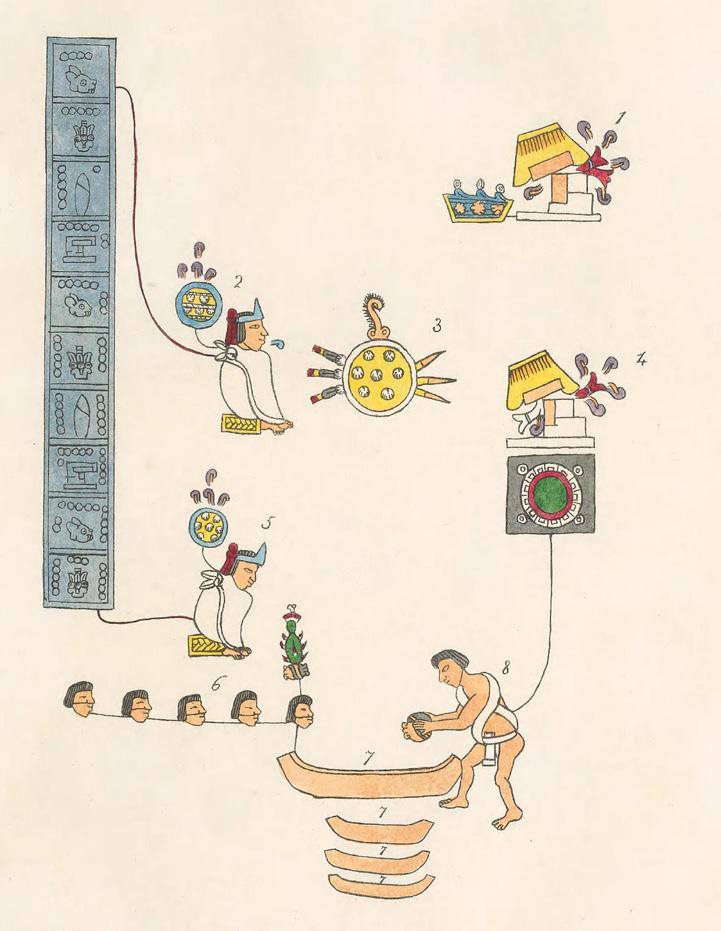 1
2
3
4
5
6
7
8
7
7
7